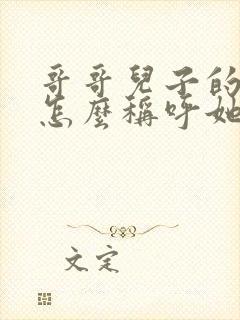 哥哥兒子的
怎麼稱呼她
文定